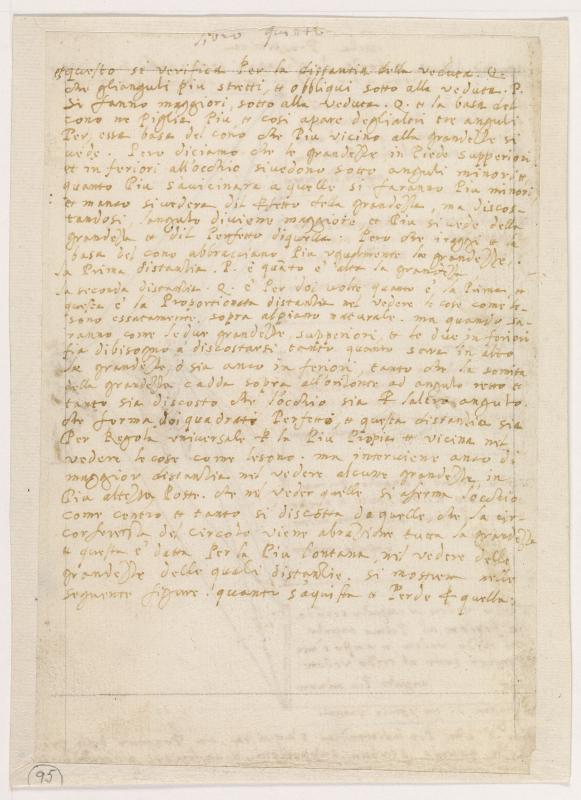 libro quinto
et questo si verifica Per la distantia della veduta. Q.
che gli anguli piu stretti, et obbliqui sotto alla veduta. P.
si fanno maggiori, sotto alla veduta. Q. et la basa del
cono ne Piglia Piu et cosi apare degli altri tre anguli
Per, essa basa del cono che Piu vicino alla grandezze si
vede. Pero diciamo che le grandezze in Piede supperiori
et in feriori all'occhio si vedono sotto anguli minori, et
quanto Piu s'avicinara a quelle si faranno Piu minori
et manco si vedera del della grandezza, ma discos-
tandosi, l'angulo diviene maggiore, et Piu si vede della
grandezza et del Perfetto di quella. Pero che i raggi et la
basa del cono abbracciano Piu ugualmente le grandezze.
la Prima distanzia. P. è quanto è alta la grandezza
la seconda distanzia. Q. è Per doi volte quanto è la Prima et
questa è la Proportionata distanzia nel vedere le cose come le-
sono essatamente. sopra al piano naturale. ma quando sa-
ranno come le due grandezze, supperiori, et le due in feriori
fia dibisogno à discostarsi tanto quanto sera in alto
la grandezza, ò sia anco in feriori, tanto che la somita
della grandezza cadda sopra all'orizonte ad angulo retto et
tanto sia discosto che l'occhio sia l'altro angulo.
che forma doi quadrati Perfetti, et questa distanzia sia
Per Regola universale la Piu Propia et vicina nel
vedere le cose come le sono. ma interviene anco di
maggior distanzia nel vedere alcune grandezze, in
Piu altezza Poste. che nel veder quelle si aferma l'occhio
come centro et tanto si discosta da quelle, che la cir-
conferenza del circolo viene abrazzione tutta la grandezza
et questa è detta Per la Piu lontana, nel vedere delle
grandezze delle quali distanzie. si mostrera nelle
seguente figure. quanto s'aquista et Perde quella.
95